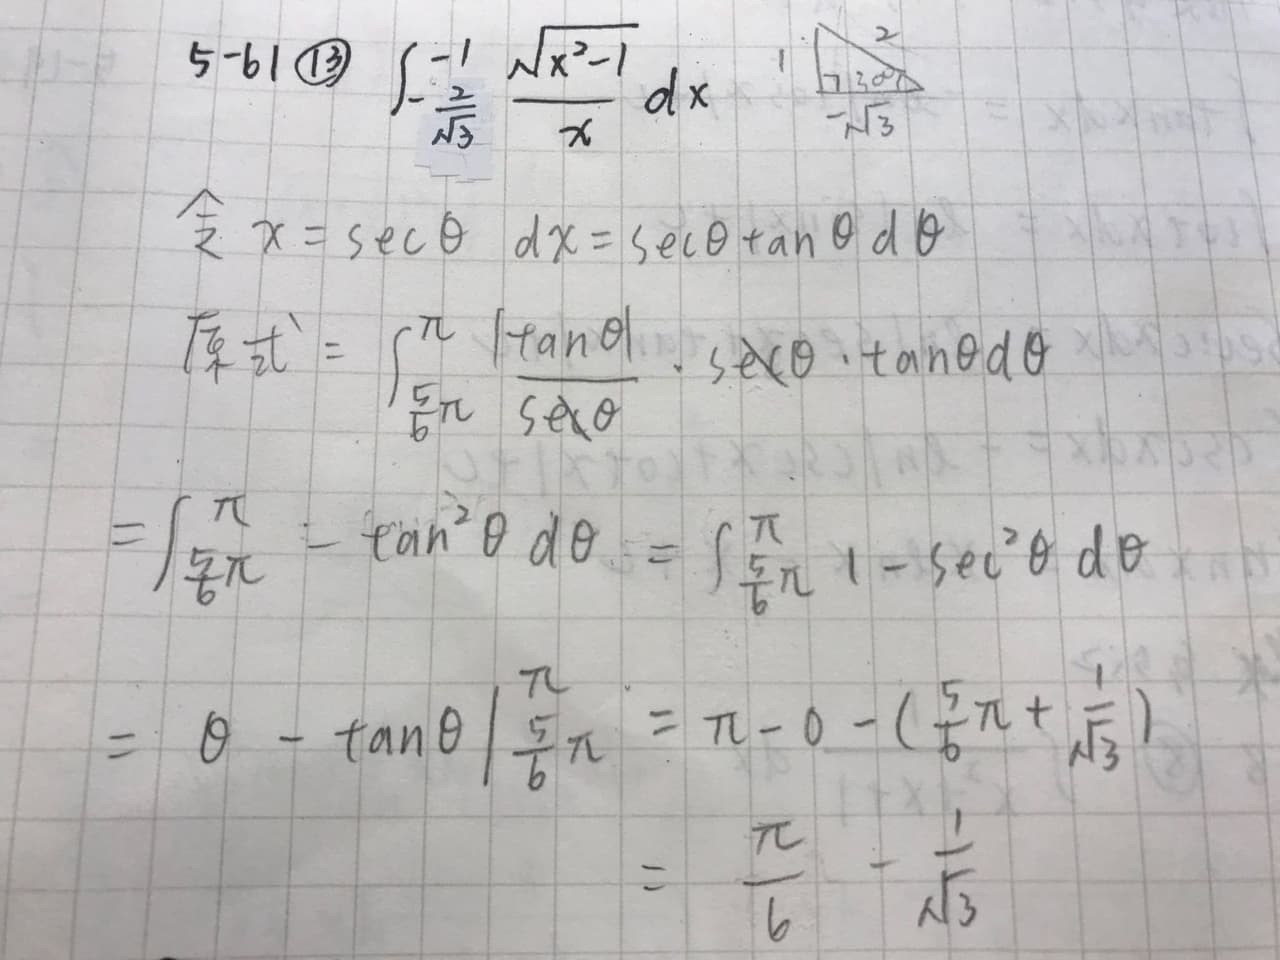 5-61 ⑬ ∫_{-2/√3}^{-1} √(x²-1)/x dx 1 2 30° -√3
令 x = secθ dx = secθ tanθ dθ
原式 = ∫_{5/6 π}^{π} |tanθ|/secθ · secθ · tanθ dθ
= ∫_{5/6 π}^{π} - tan²θ dθ = ∫_{5/6 π}^{π} 1 - sec²θ dθ
= θ - tanθ |_{5/6 π}^{π} = π - 0 - (5/6 π + 1/√3)
= π/6 - 1/√3